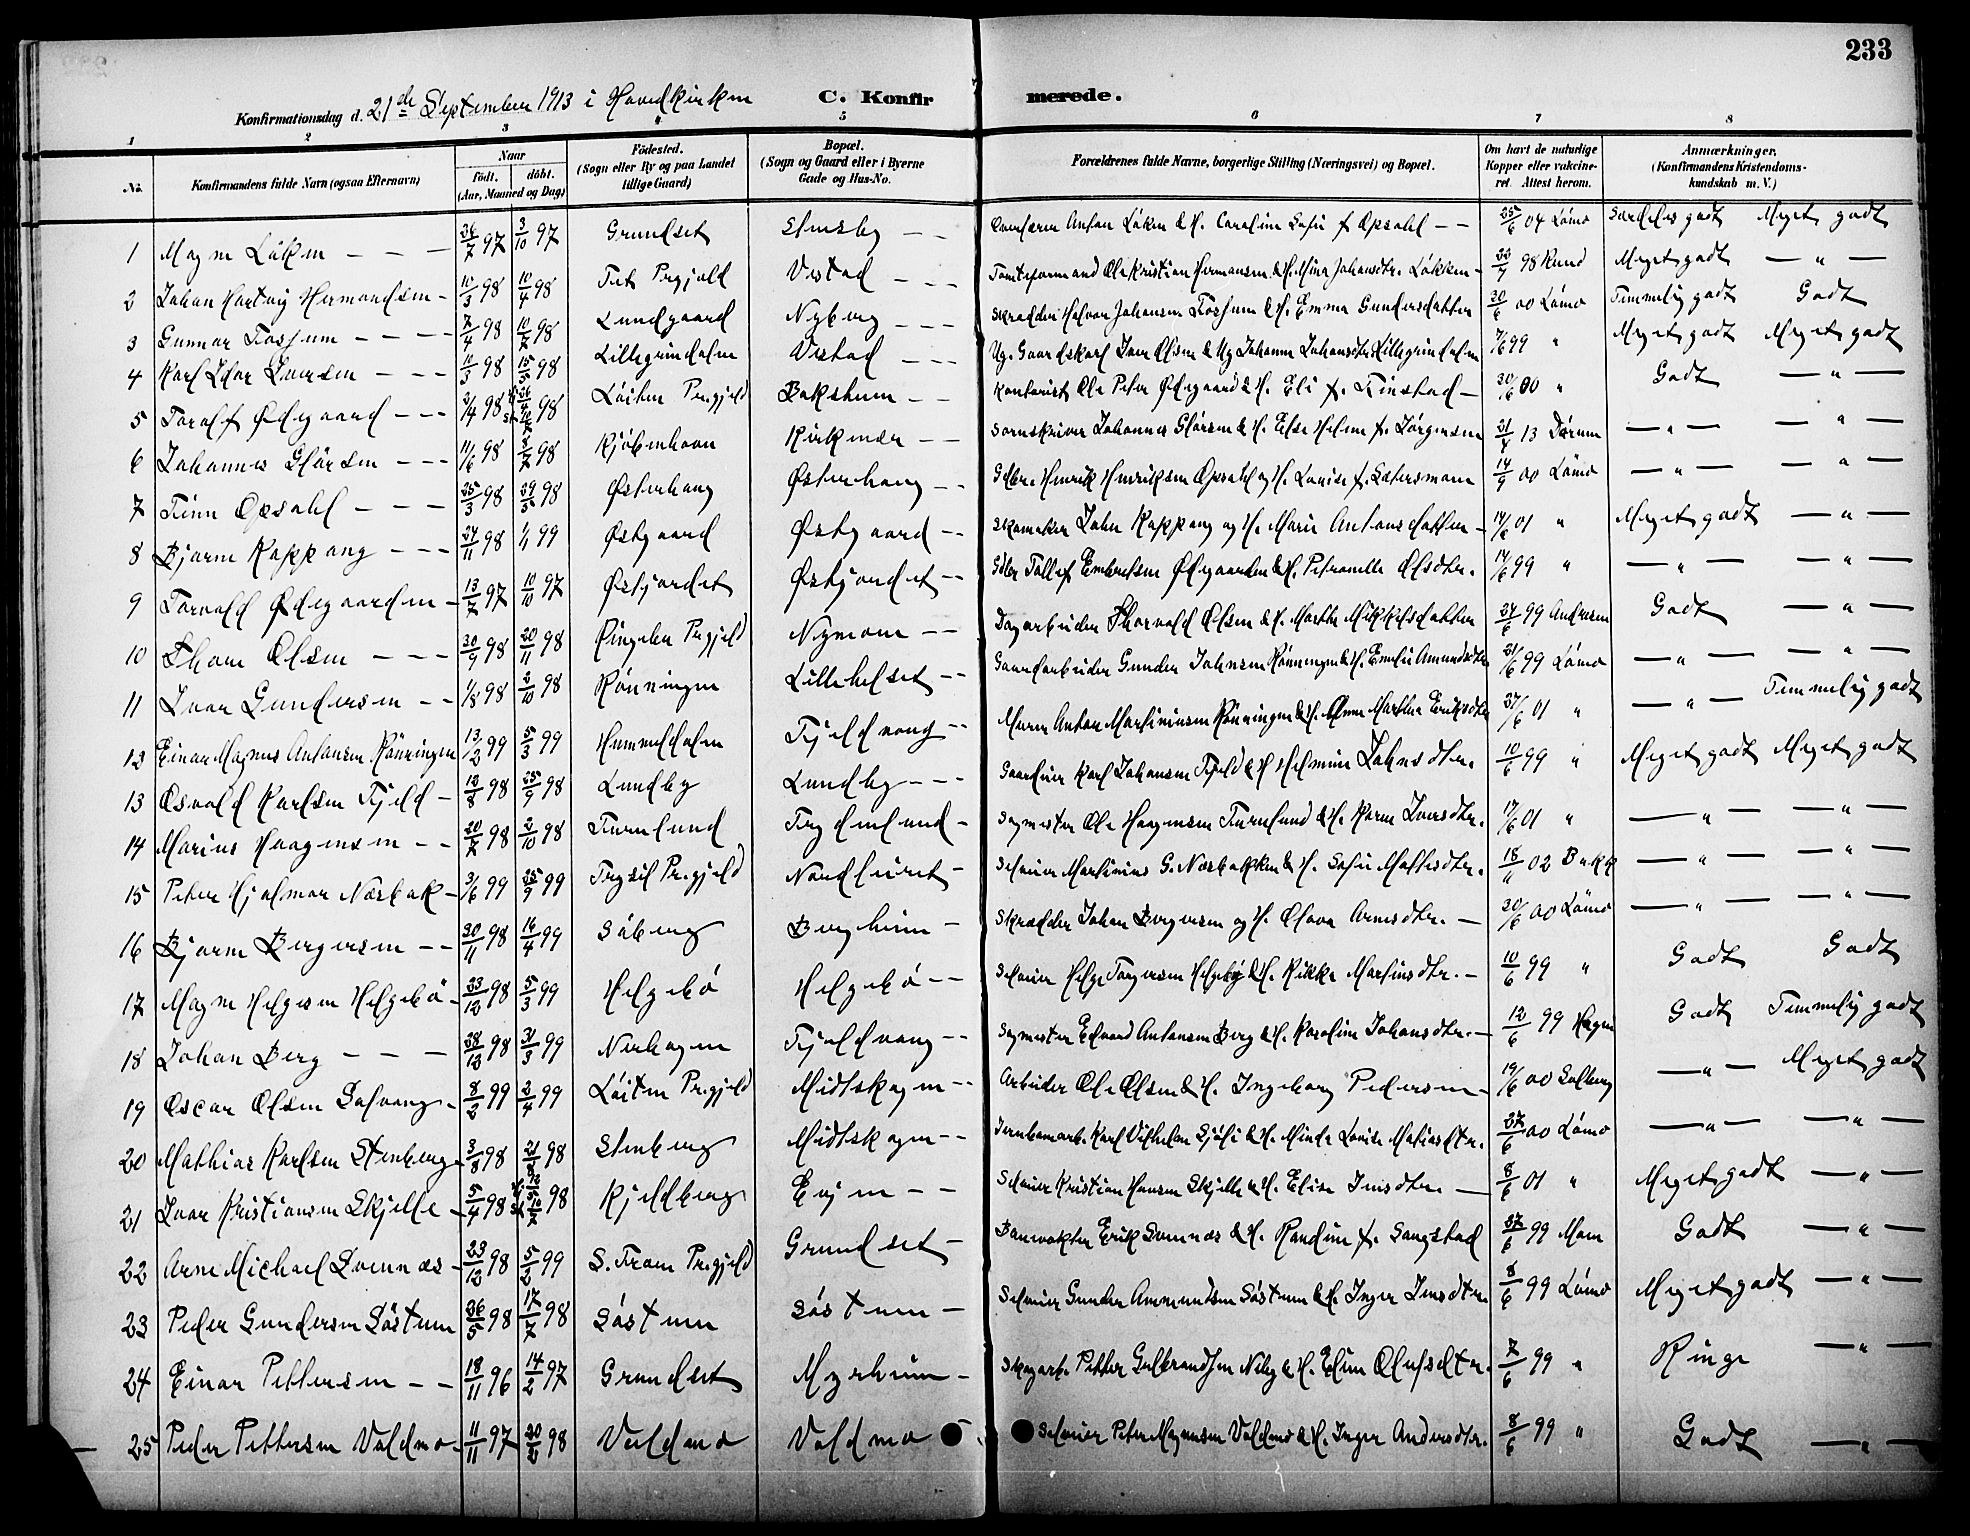 233
Konfirmationsdag d. 21de September 1913 i Hovedkirken C. Konfirmerede.
1 2 3 4 5 6 7 8
No. Konfirmandens fulde Navn (ogsaa Efternavn) Naar födt. döbt. (Aar, Maaned og Dag) Födested. (Sogn eller By og paa Landet tillige Gaard) Bopæl. (Sogn og Gaard eller i Byerne Gade og Hus-No. Forældrenes fulde Navne, borgerlige Stilling (Næringsvei) og Bopæl. Om havt de naturlige Kopper eller vakcineret. Attest herom. Anmærkninger. (Konfirmandens Kristendomskundskab m. V.)
1 Magne Löken 26/7 97 3/10 97 Grundset Anton Löken & H. Caroline f. Opsahl 25/6 04 Lömo Særdeles godt Meget godt
2 Johan Hartvig Hermandsen 10/3 98 10/4 98 Prgjeld Vestad Ole Kristian Hermansen & H. Mina Johansdtr. Løkken 98 Rund Meget godt — " —
3 Gunnar Fossum 7/4 98 10/7 98 Lundgaard Nyberg Skrædder Halvor Johansen Fossum & H. Emma Gundersdatter 30/6 00 Lömo Temmelig godt Godt
4 Karl Iversen 10/3 98 15/5 98 Lillegrindalen Vestad Ug. Gaardskarl Iver Olsen & Ug. Johanne Johansdtr. Lillegrindalen 7/6 99 " Meget godt Meget godt
5 Toralf Ödegaard 2/4 98 98 Löiten Prgjeld Bakkehun Kontorist Ole Peter Ödegaard & H. Eli f. Finstad 30/6 00 " Godt — " —
6 Johannes Glörsen 11/6 98 3/7 98 Kjöbenhavn Kirkenær Johannes Glörsen & H. Else Helene f. Jörgensen 21/4 13 — " — — " —
7 Finn Opsahl 25/3 98 29/5 98 Østerhaug Østerhaug Henrik Henriksen Opsahl og H. Lovise f. Sætersmoen 14/9 00 Lömo — " — — " —
8 Bjarne Kappang 27/11 98 1/1 99 Østgaard Østgaard Skomaker John Kappang og H. Marie Antonsdatter 14/6 01 " Meget godt — " —
9 Torvald Ödegaarden 13/7 97 10/10 97 Østjordet Østjordet Tollef Embretsen Ödegaarden & H. Petronelle Olsdtr. 14/6 99 " — " — — " —
10 Thore Olsen 30/9 98 20/11 98 Ringebu Prgjeld Nymoen Dagarbeider Thorvald Olsen & H. Marthe Mikkelsdatter 27/6 99 Andresen Godt — " —
11 Ivar Gundersen 1/8 98 2/10 98 Rönningen Lillehelset Gaardarbeider Gunder Johnsen Rönningen & H. Emilie Amundsdtr 21/6 99 Lömo — " — — " —
12 Einar Magnus Antonsen Rönningen 13/2 99 5/3 99 Hummeldalen Fjeldvang Murer Anton Martiniusen Rönningen & H. Anne Marthea Eriksdtr 27/6 01 " — " — Temmelig godt
13 Osvald Karlsen Fjeld 12/8 98 25/9 98 Lundby Lundby Gaardeier Karl Johansen Fjeld & H. Helmine Johnsdtr. 10/6 99 " Meget godt Meget godt
14 Marius Haagensen 20/7 98 2/10 98 Furulund Frydenlund Sagmester Ole Haagensen Furulund & H. Karen Iversdtr. 17/6 01 " — " — — " —
15 Peter Hjalmar Næsbak 3/6 99 25/9 99 Trysil Prgjeld Nordheimt Selveier Martinius G. Næsbakken & H. Sofie Mathisdtr. 18/11 02 Bakke — " — — " —
16 Bjarne Bergersen 30/11 98 16/4 99 Söberg Bergheim Skrædder Johan Bergersen og H. Olava Arnesdtr. 20/6 00 Lömo — " — — " —
17 Magne Helgesen Helgebö 23/12 98 5/3 99 Helgebö Helgebö Selveier Helge Torgersen Helgebö & H. Rikka Martinsdtr. 10/6 99 " Godt Godt
18 Johan Berg 28/12 98 31/3 99 Nerhagen Fjeldvang Sagmester Edvard Antonsen Berg & H. Karoline Johansdtr. 12/6 99 Hagen Godt Temmelig godt
19 Oscar Olsen Solvang 8/2 99 2/4 99 Löiten Prgjeld Midtskogen Arbeider Ole Olsen & H. Ingeborg Pedersen 19/6 00 Solberg — " — Meget godt
20 Mathias Karlsen Stenberg 3/8 98 21/8 98 Stenberg Midtskogen Jernbanearb. Karl Vilhelm Sjöli & H. Minda Lovise Matiasdtr. 27/6 00 Lömo — " — — " —
21 Ivar Kristiansen Skjelle 5/4 98 98 Kjeldberg Engen Selveier Kristian Hansen Skjelle & H. Elise Jensdtr. 8/6 01 " Meget godt — " —
22 Arne Michael Svennæs 23/12 98 5/2 99 S. Fron Prgjeld Grundset Banevokter Erik Svennæs & H. Randine f. Sangstad 27/6 99 Moen Godt — " —
23 Peder Gundersen Söstuen 26/5 98 17/7 98 Söstuen Söstuen Selveier Gunder Ammundsen Söstuen & H. Inger Jensdtr. 8/6 99 Lömo Meget godt — " —
24 Einar Pettersen 18/11 96 14/2 97 Grundset Myrheim Skogarb. Petter Gulbrandsen Neby & H. Eline Olufsdtr. 7/6 99 " Ringe — " —
25 Peder Pettersen Voldmo 11/11 97 20/2 98 Voldmo Voldmo Selveier Peter Magnusen Voldmo & H. Inger Andersdtr. 8/6 99 " Godt — " —